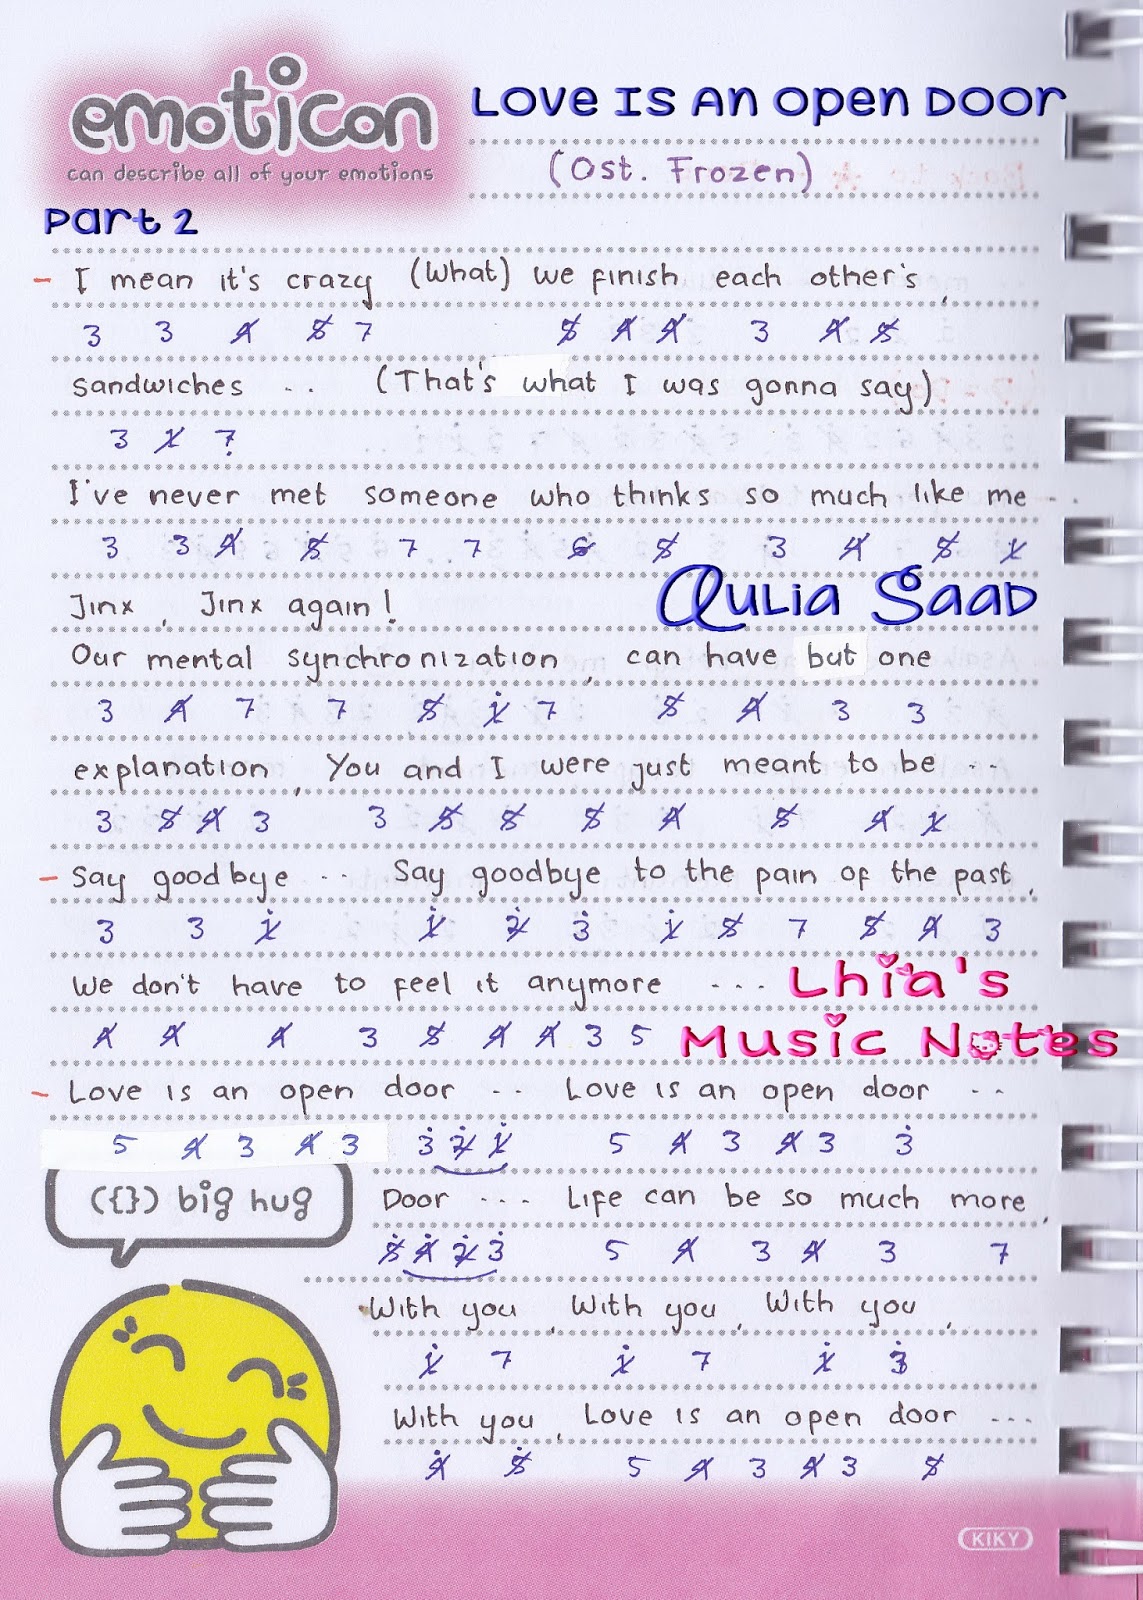 emoticon
can describe all of your emotions
Love Is An Open Door
(Ost. Frozen)
Part 2
- I mean it's crazy (What) we finish each other's,
3 3 4̸ 5̸ 7 5̸ 4̸ 4̸ 3 4̸ 5̸
sandwiches .. (That's what I was gonna say)
3 1̸ 7̣
I've never met someone who thinks so much like me ..
3 3 4̸ 5̸ 7 7 6 5̸ 3 4̸ 5̸ 1̸
Jinx, Jinx again!
Aulia Saad
Our mental synchronization, can have but one
3 4̸ 7 7 5̸ 1̸̇ 7 5̸ 4̸ 3 3
explanation, You and I were just meant to be ...
3 5̸ 4̸ 3 3 5̸ 5̸ 5̸ 4̸ 5̸ 4̸ 1̸
- Say goodbye ... Say goodbye to the pain of the past,
3 3 1̸̇ 1̸̇ 2̸̇ 3̇ 1̸̇ 5̸ 7 5̸ 4̸ 3
We don't have to feel it anymore ...
4̸ 4̸ 4̸ 3 5̸ 4̸ 4̸ 3 5
Lhia's
Music Notes
- Love is an open door ... Love is an open door ...
5 4̸ 3 4̸ 3 3̇ 2̸̇ 1̸̇ 5 4̸ 3 4̸ 3 3̇
({}) big hug
Door ... Life can be so much more,
5̸̇ 4̸̇ 2̸̇ 3̇ 5 4̸ 3 4̸ 3 7
With you, With you, With you,
1̸̇ 7 1̸̇ 7 1̸̇ 3̇
With you, Love is an open door ...
4̸̇ 5̸̇ 5 4̸ 3 4̸ 3 5̸
KIKY